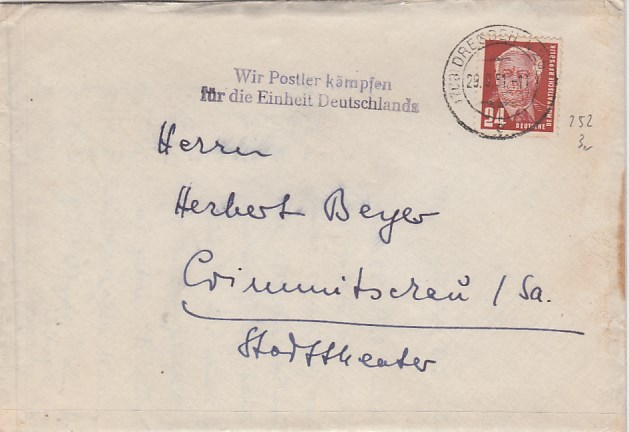 Wir Postler kämpfen
für die Einheit Deutschlands
DRESDEN
24
DEUTSCHE
DEMOKRATISCHE REPUBLIK
252
Herrn
Herbert Beyer
Crimmitschau / Sa.
Stadttheater